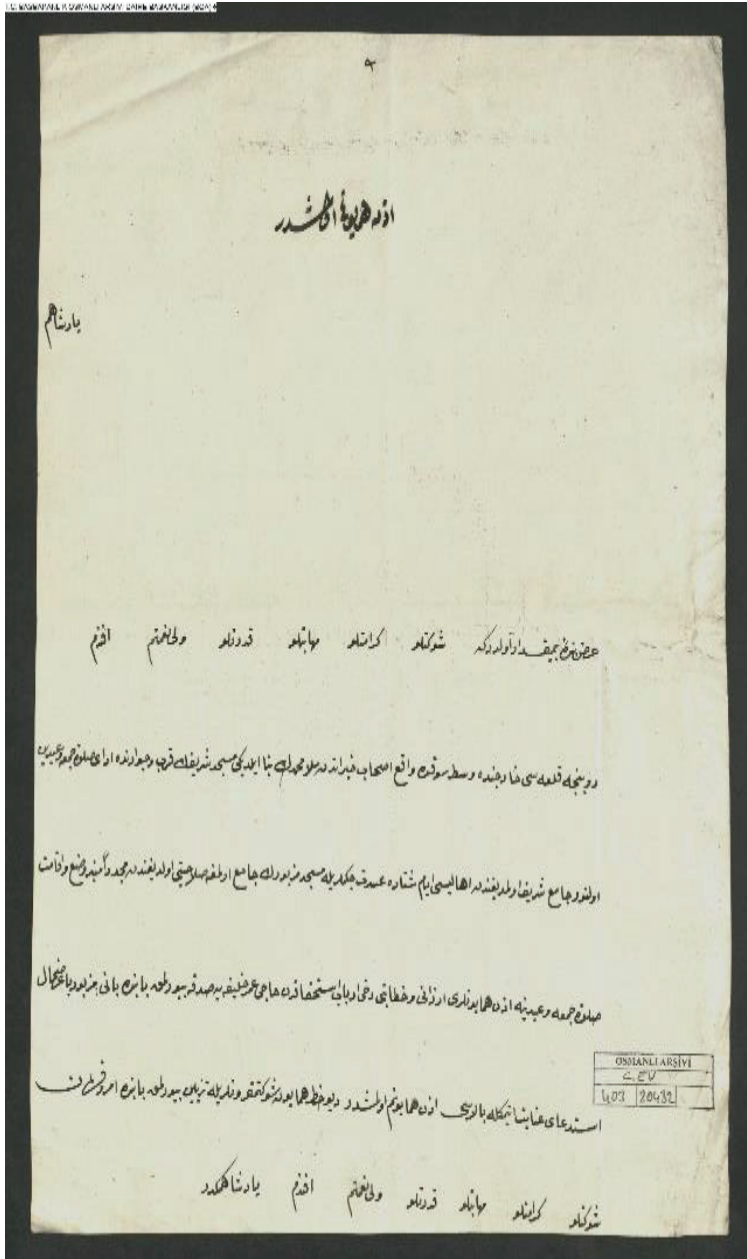 T.C. BAŞBAKANLIK OSMANLI ARŞİVİ DAİRE BAŞKANLIĞI (BOA)
اذن همايونم اولمشدر
پادشاهم
عرض بنده بيمقدار اولدركه شوكتلو كرامتلو مهابتلو قدرتلو ولى نعمتم افندم
قلعه سى خارجنده وسط سوقده واقع اصحاب خيراتدن ملا محمدك بنا ايلديكى مسجد شريفك قرب وجوارنده اداى صلوة جمعه وعيدين
اولنور جامع شريف اولمديغندن اهاليسى ايام شتاده عسرت چكملريله مسجد مزبورك جامع اولمغه صلاحيتى اولديغندن مجددا منبر وضع واقامت
صلوة جمعه وعيدينه اذن همايونلرى ارزانى وخطابتى دخى ارباب استحقاقدن حاجى عمر خليفه يه صدقه بيورلمق بابنده بانئ مزبور با عرضحال
استدعاى عنايت ايتمكله بالاسى اذن همايونم اولمشدر ديو خط همايون شوكتمقرونلريله تزيين بيورلمق بابنده امر وفرمان
شوكتلو كرامتلو مهابتلو قدرتلو ولى نعمتم افندم پادشاهمكدر
OSMANLI ARŞİVİ
C.EV
403 20432